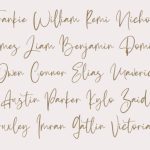 Frankie William Remi Nicho
mes Liam Benjamin Domi
Owen Connor Elias Maveric
Austin Parker Kylo Zaid
uxley Imran Gatlin Victoria